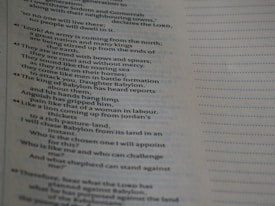 along with their neighboring towns,"
declares the LORD,
"so no one will live there;
no people will dwell in it.
"Look! An army is coming from the north;
a great nation and many kings
are being stirred up from the ends of
They are armed with bows and spears;
they are cruel and without mercy.
They sound like the roaring sea
as they ride on their horses;
they come like men in battle formation
to attack you, Daughter Babylon.
The king of Babylon has heard reports
about them,
and his hands hang limp.
Anguish has gripped him,
pain like that of a woman in labour.
Like a lion coming up from Jordan's
thickets
to a rich pasture-land,
I will chase Babylon from its land in an
instant.
Who is the chosen one I will appoint
for this?
Who is like me and who can challenge
me?
And what shepherd can stand against
me?"
Therefore, hear what the LORD has
planned against Babylon,
what he has purposed against the land
of the Babylonians: